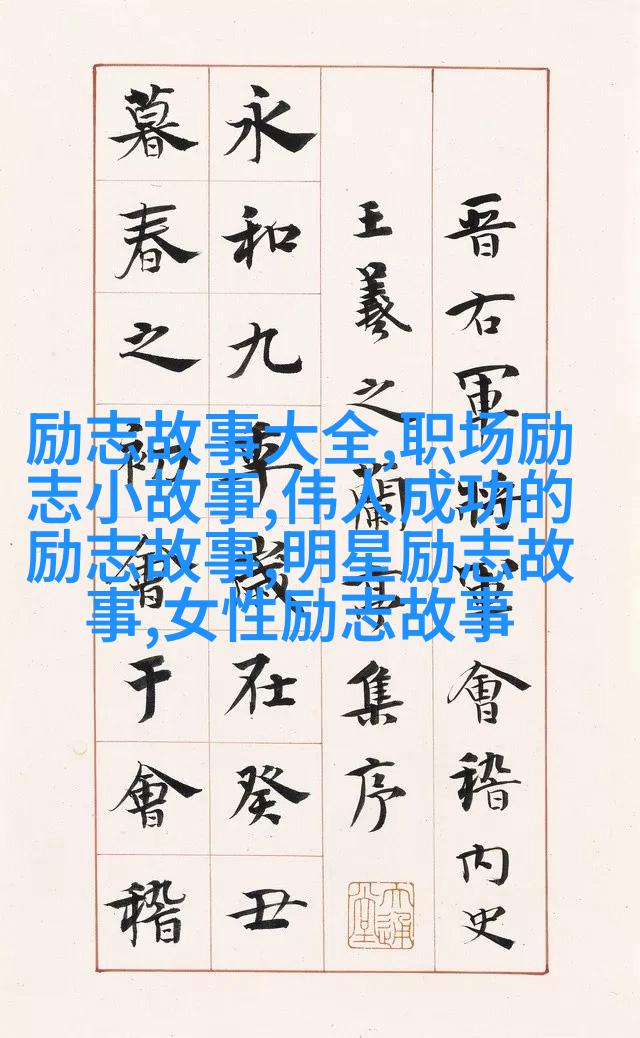 晋右軍將軍會稽内史
王羲之蘭亭集序
永和九年歲在癸丑
暮春之初會于會稽
励志故事大全,职场励
志小故事,伟人成功的
励志故事,明星励志故
事,女性励志故事